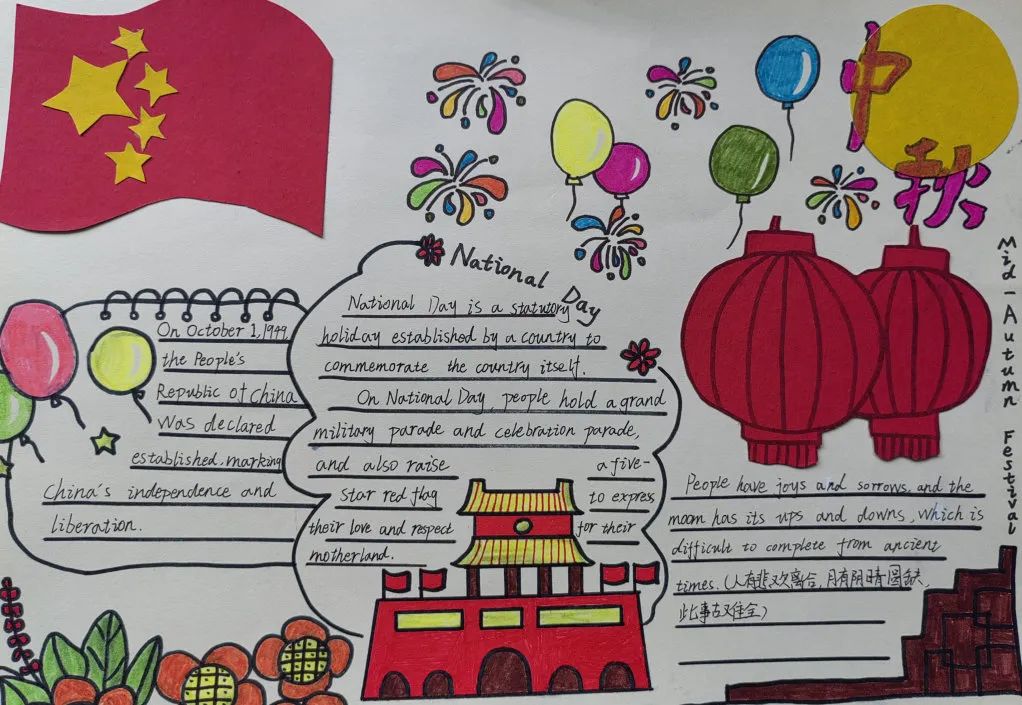 中秋
Mid-Autumn Festival
National Day
On October 1,1949,
the People's
Republic of China
was declared
established, marking
China's independence and
liberation.
National Day is a statutory
holiday established by a country to
commemorate the country itself.
On National Day, people hold a grand
military parade and celebration parade,
and also raise a five-
star red flag to express
their love and respect for their
motherland.
People have joys and sorrows, and the
moon has its ups and downs, which is
difficult to complete from ancient
times. (人有悲欢离合,月有阴晴圆缺,
此事古难全)